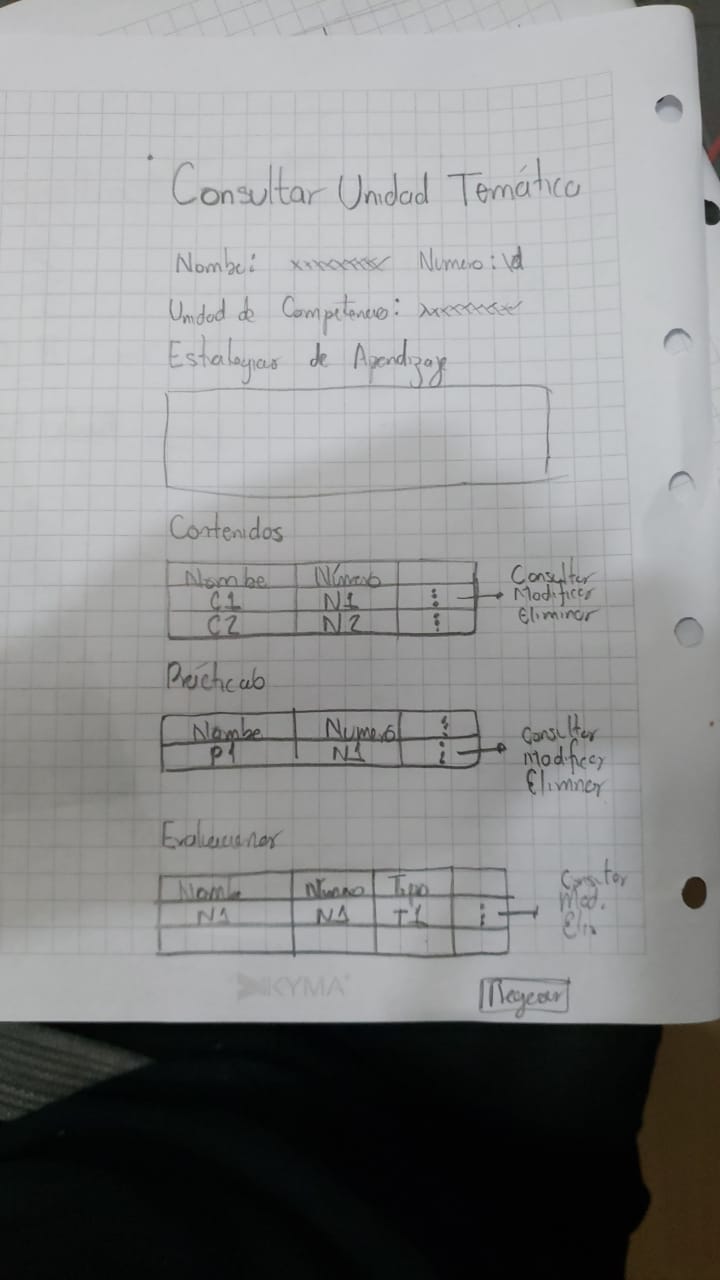 Consultar Unidad Temática
Nombe: xxxxxxxxx Numero: \d
Unidad de Competencia: xxxxxxxxx
Estategias de Apendizaje
Contenidos
Nombe Número
C1 N1 ⋮ Consulter
Modificer
C2 N2 ⋮ Eliminar
Prácticas
Nombe Numero ⋮
P1 N1 ⋮ Consulter
Modificer
Elimner
Evaluaciones
Nombe Numero Tipo
N1 N1 T1 ⋮ Consultar
Mod.
Eli
KYMA
Regesar